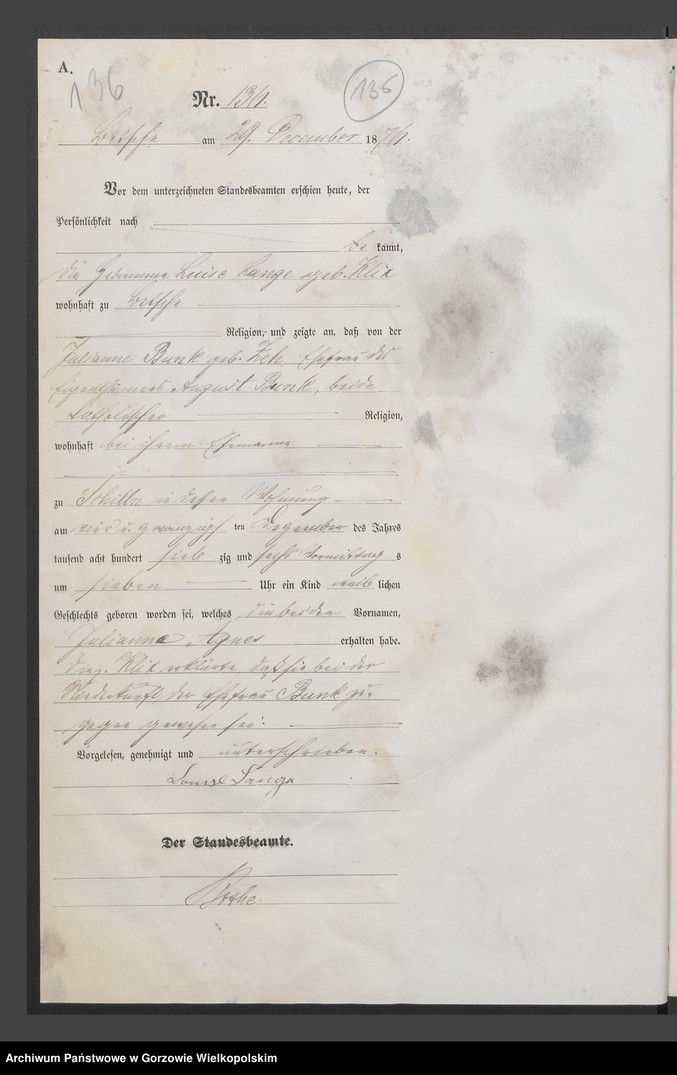 A.
136
136
Nr. 136.
Betsche am 29. December 1876.
Vor dem unterzeichneten Standesbeamten erschien heute, der
Persönlichkeit nach
be kannt,
die Hebamme Luise Lange geb. Klix
wohnhaft zu Betsche
Religion, und zeigte an, daß von der
Julianne Bunk geb. Zeh, Ehefrau des
Eigenthümers August Bunk, beide
katholischer Religion,
wohnhaft bei ihrem Ehemanne
zu Schilln in dessen Wohnung
am vier u. zwanzigs ten Dezember des Jahres
tausend acht hundert sieb zig und sechs Vormittag s
um sieben Uhr ein Kind weib lichen
Geschlechts geboren worden sei, welches die beiden Vornamen,
Julianna Agnes erhalten habe.
Klix erklärte daß sie bei der
Niederkunft der Ehefrau Bunk zu-
gegen gewesen sei.
Vorgelesen, genehmigt und unterschrieben.
Louise Lange
Der Standesbeamte.
Bothe
Archiwum Państwowe w Gorzowie Wielkopolskim